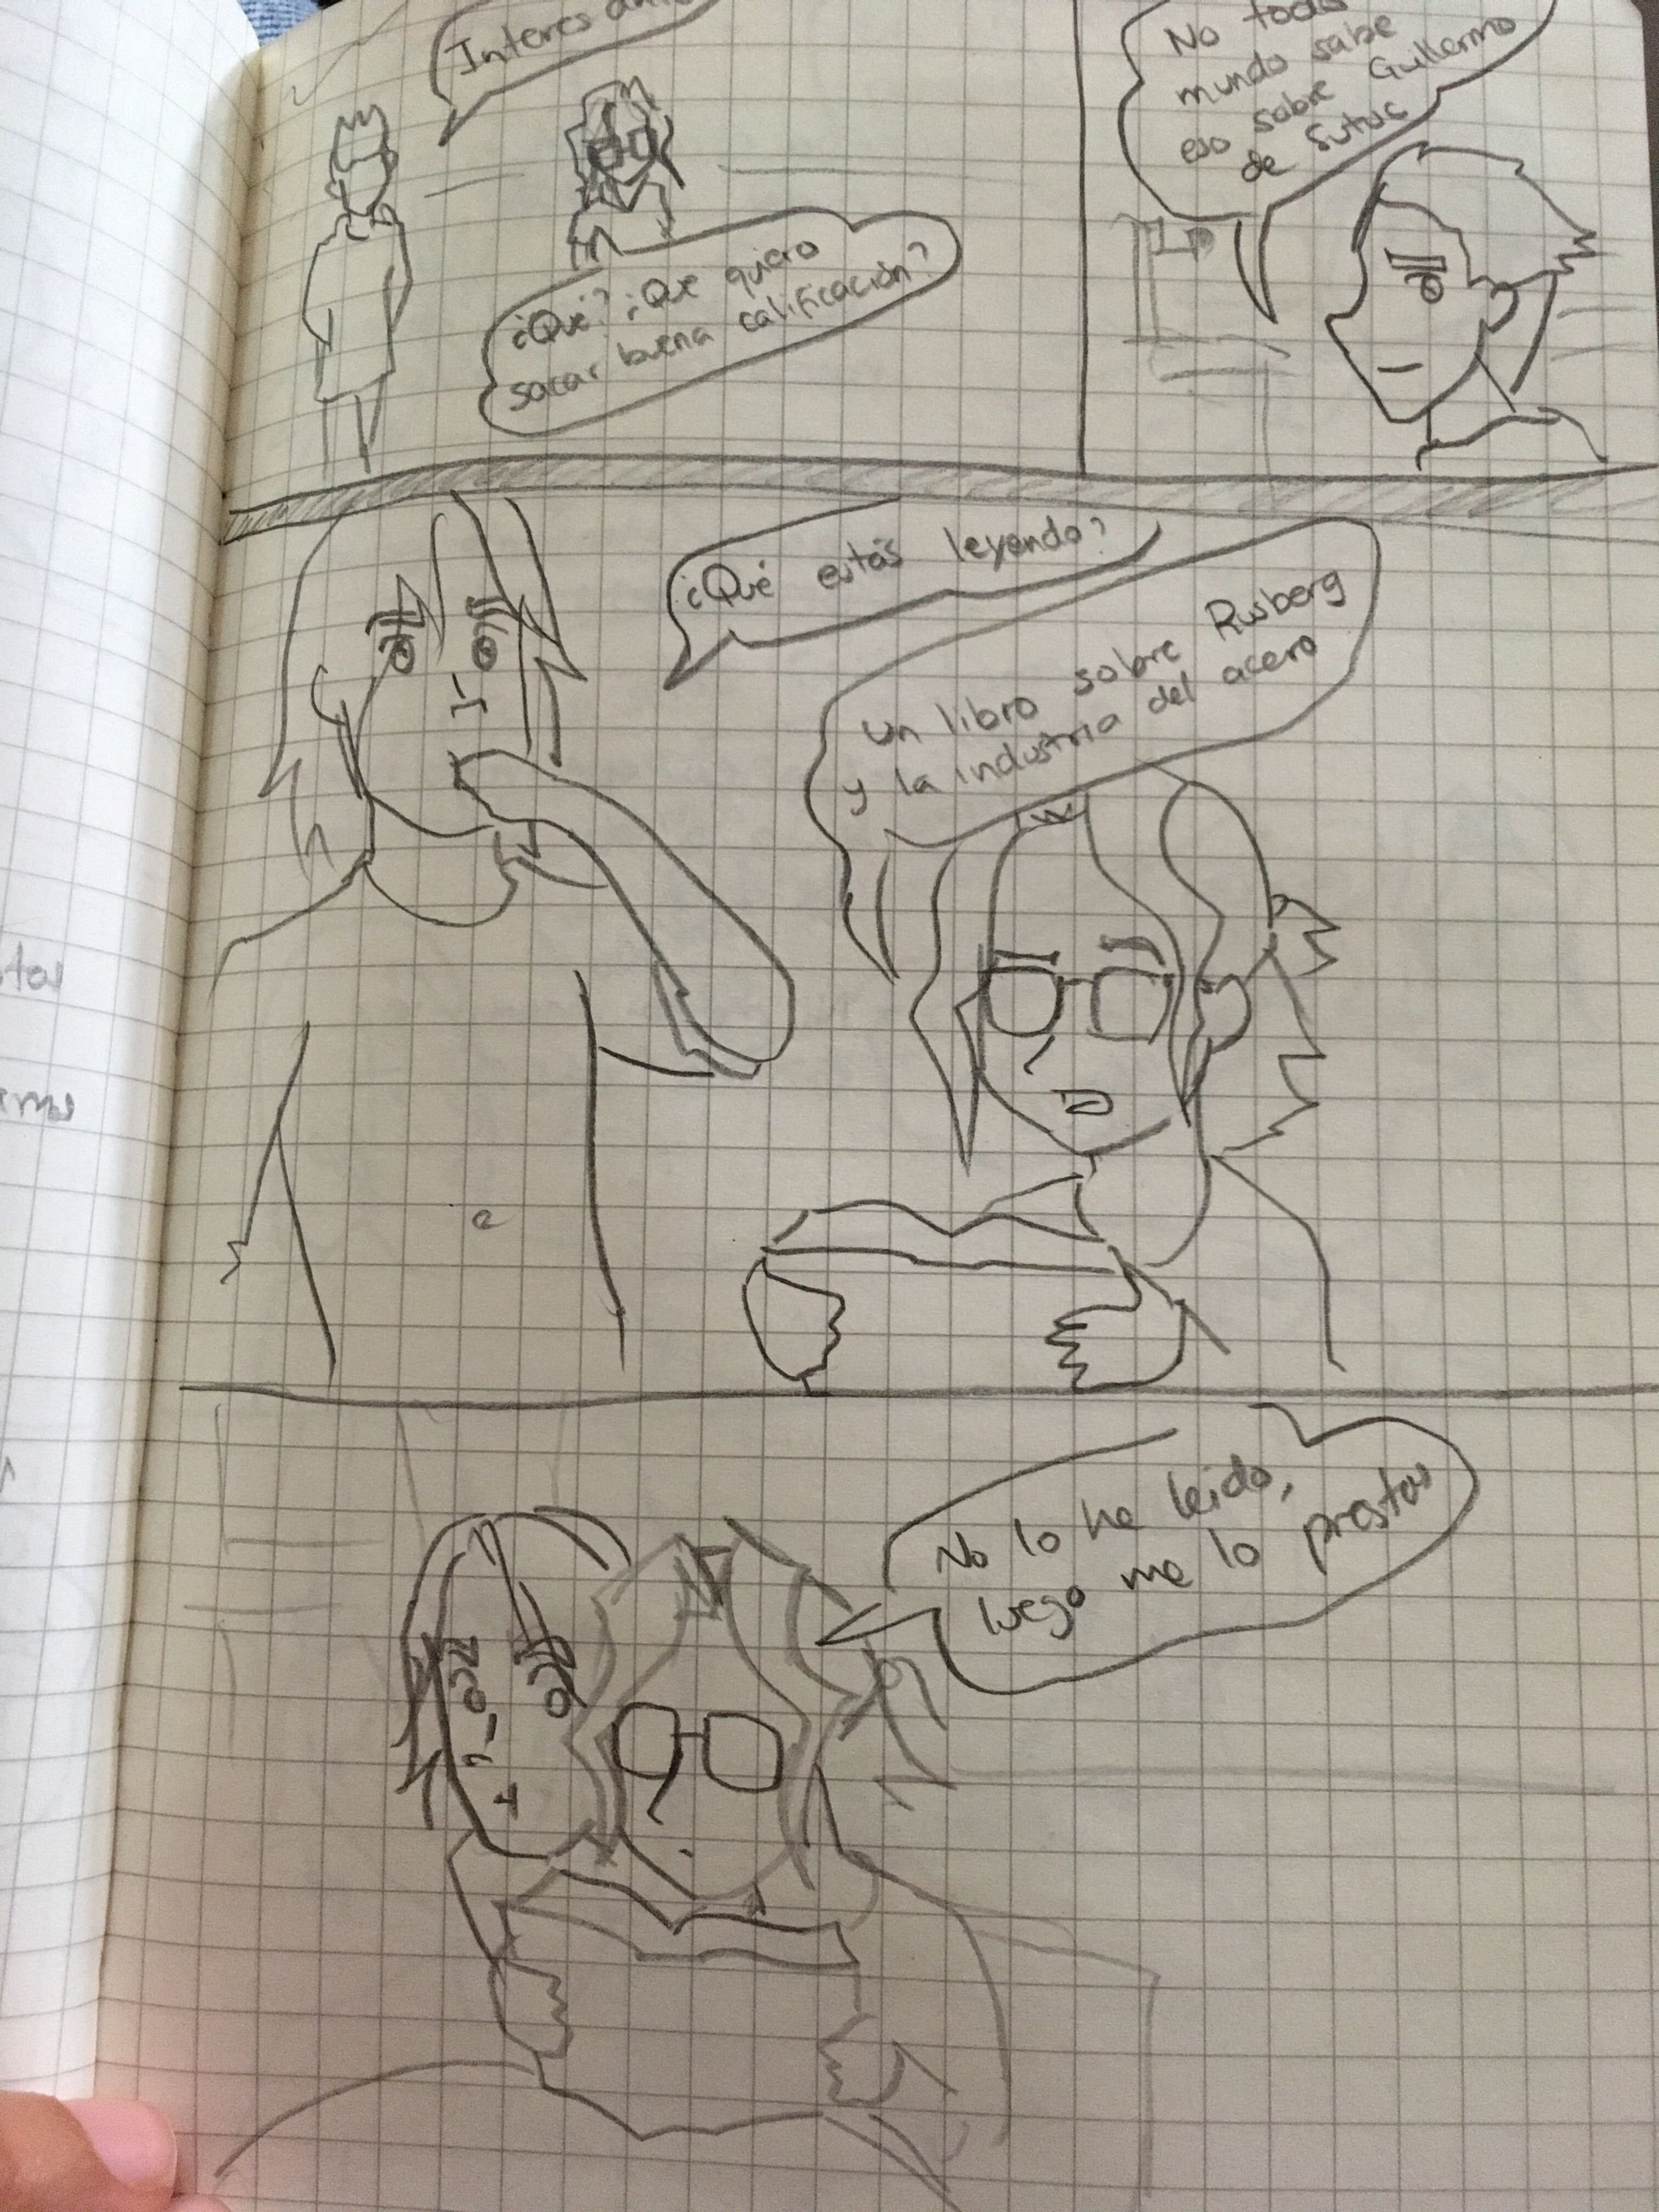 ¿Qué? ¿Que quiero
sacar buena calificación?
No todo
mundo sabe
eso sobre Guillermo
de
¿Qué estás leyendo?
un libro sobre Rusberg
y la industria del acero
No lo he leido,
luego me lo prestas